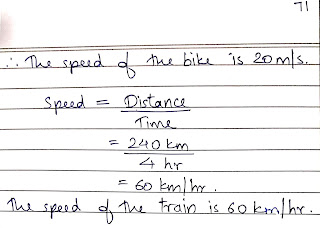 71
∴ The speed of the bike is 20 m/s.
Speed = Distance
Time
= 240 km
4 hr
= 60 km/hr.
The speed of the train is 60 km/hr.